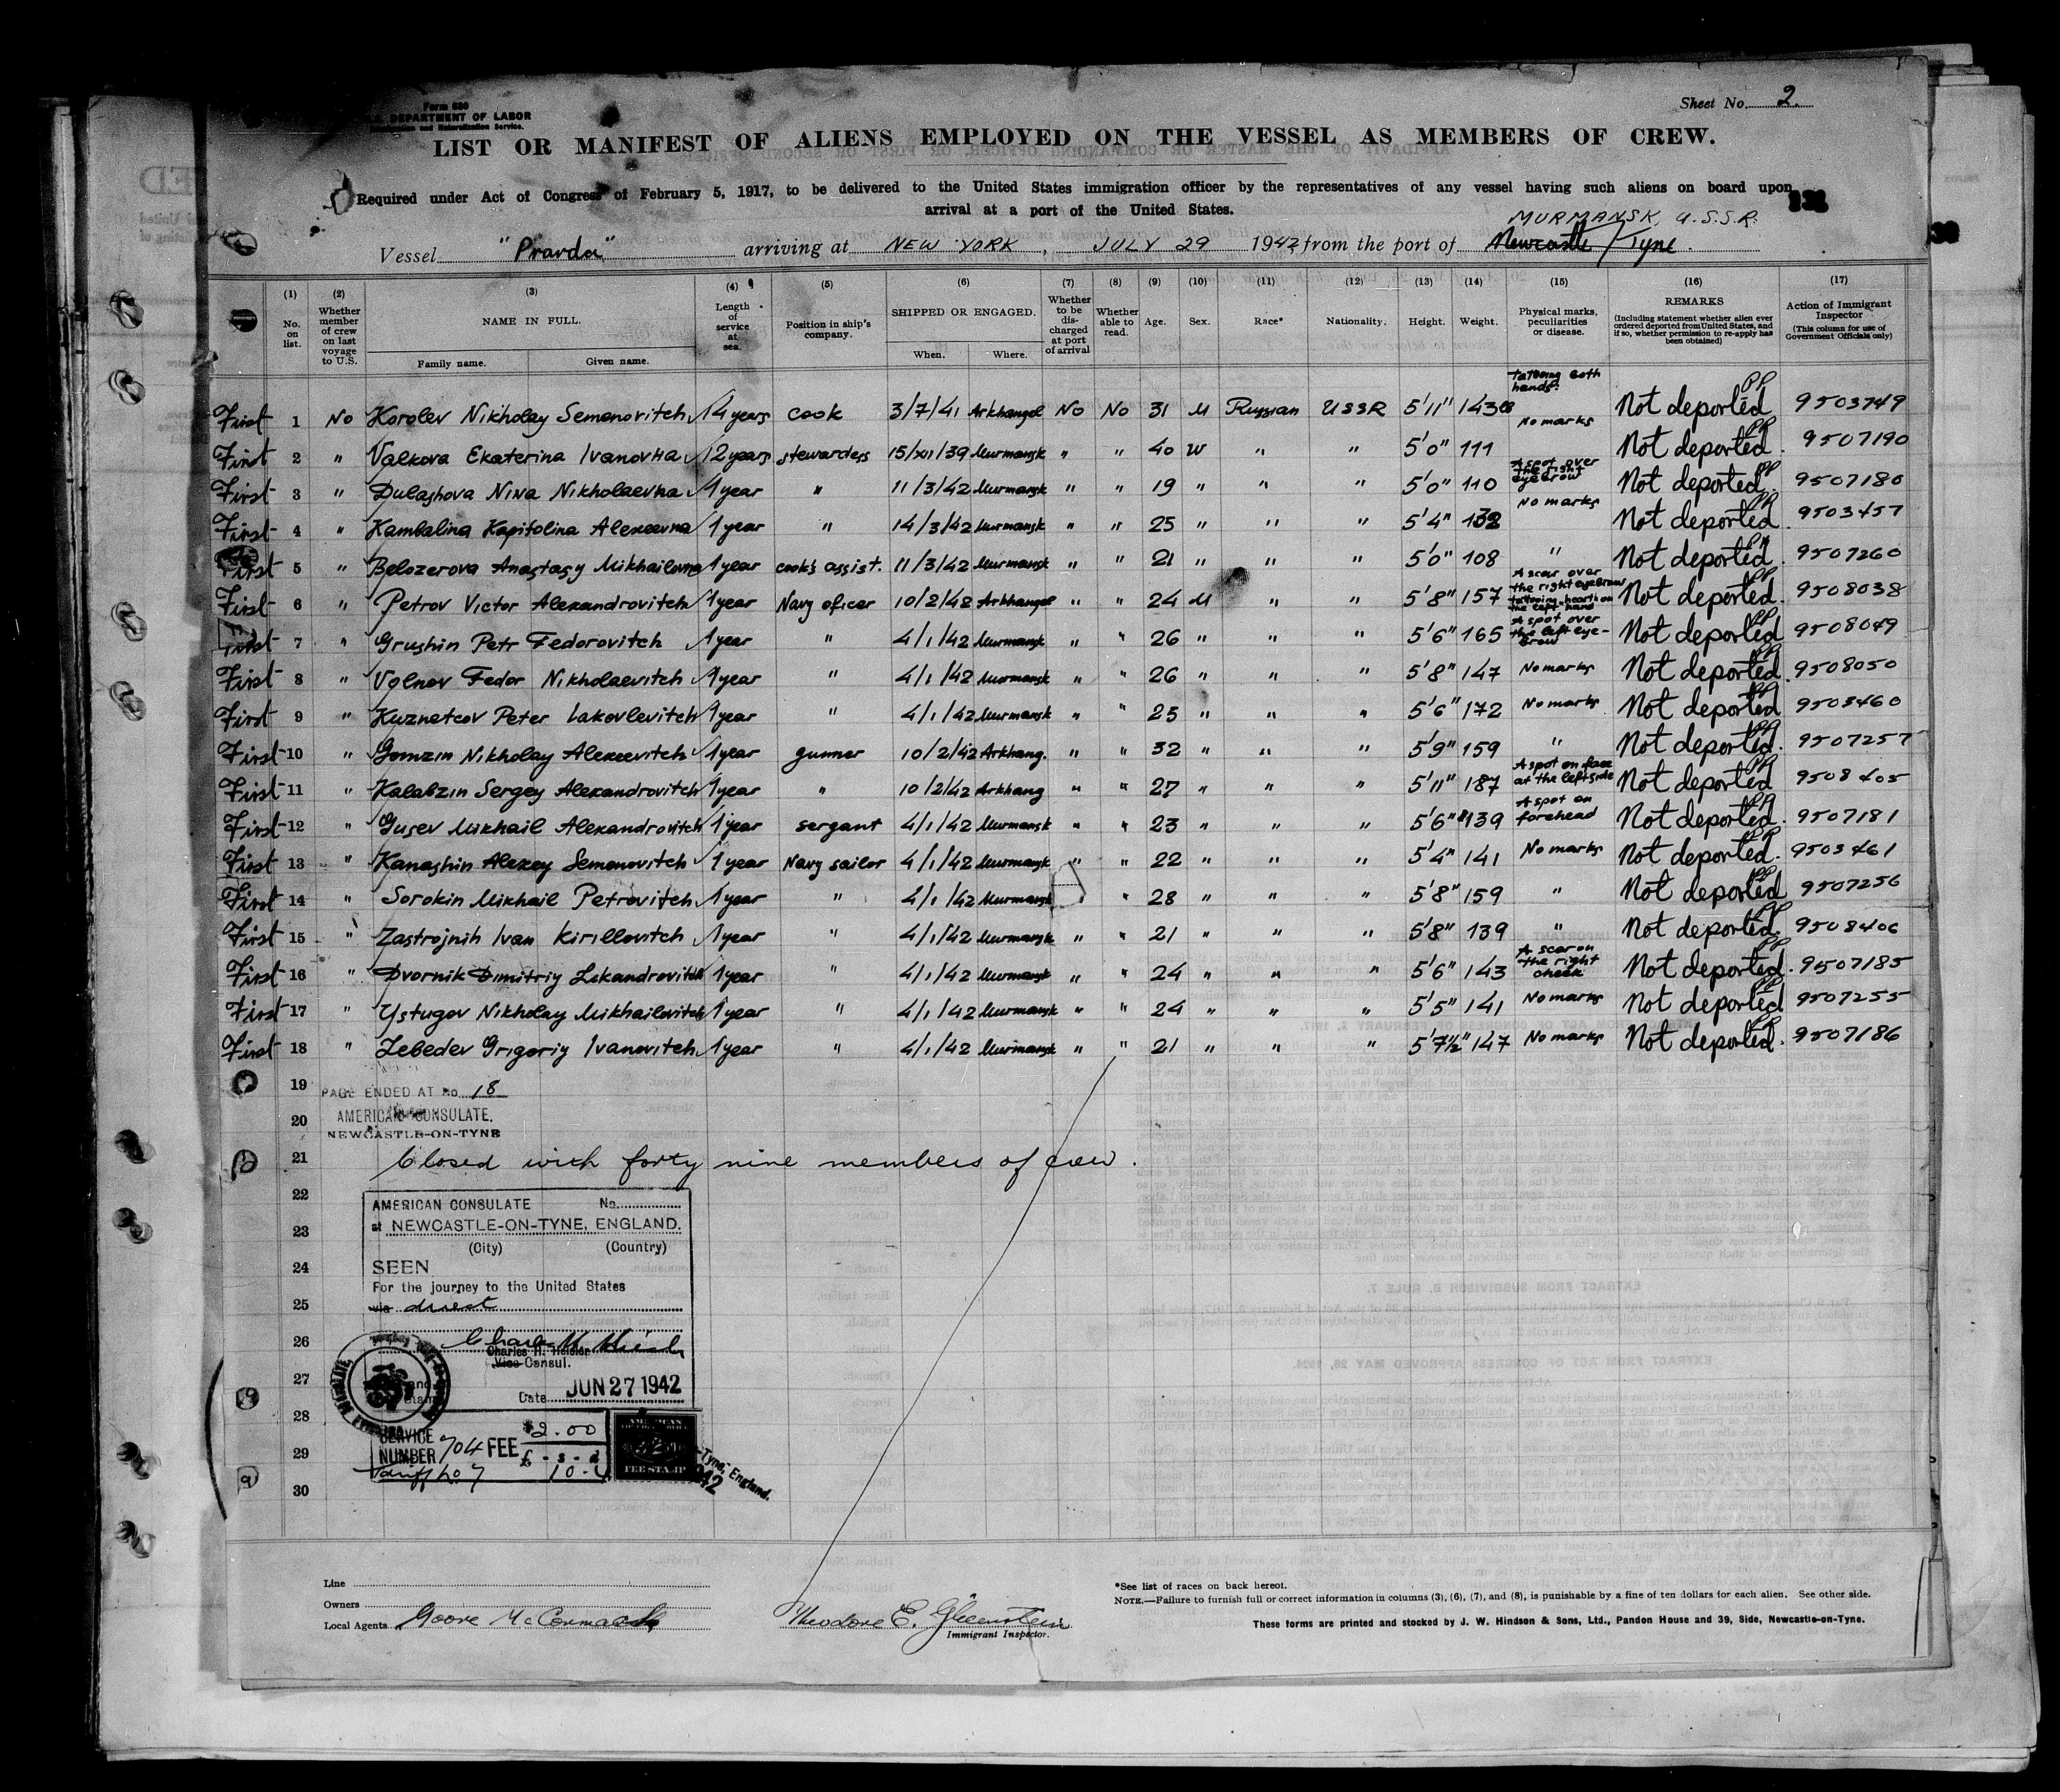 Form 680
U.S. DEPARTMENT OF LABOR
Immigration and Naturalization Service.
Sheet No. 2.
LIST OR MANIFEST OF ALIENS EMPLOYED ON THE VESSEL AS MEMBERS OF CREW.
Required under Act of Congress of February 5, 1917, to be delivered to the United States immigration officer by the representatives of any vessel having such aliens on board upon
arrival at a port of the United States.
MURMANSK, U.S.S.R.
Vessel "Pravda" arriving at NEW YORK, JULY 29 1942, from the port of Newcastle / Tyne.
(1) (2) (3) (4) (5) (6) (7) (8) (9) (10) (11) (12) (13) (14) (15) (16) (17)
No. on list. Whether member of crew on last voyage to U.S. NAME IN FULL. Length of service at sea. Position in ship's company. SHIPPED OR ENGAGED. Whether to be discharged at port of arrival Whether able to read. Age. Sex. Race* Nationality. Height. Weight. Physical marks, peculiarities or disease. REMARKS (Including statement whether alien ever ordered deported from United States, and if so, whether permission to re-apply has been obtained) Action of Immigrant Inspector (This column for use of Government Officials only)
Family name. Given name. When. Where.
First 1 No Korolev Nikholay Semenovitch 14 years cook 3/7/41 Arkhangel No No 31 M Russian USSR 5'11" 143 tattooing both hands. Not deported 9503749
First 2 " Valkova Ekaterina Ivanovna 12 years stewardess 15/XII/39 Murmansk " " 40 W " " 5'0" 111 No marks Not deported. 9507190
First 3 " Dulashova Nina Nikholaevna 1 year " 11/3/42 Murmansk " " 19 " " " 5'0" 110 A spot over the right eyebrow Not deported. 9507180
First 4 " Kambalina Kapitolina Alexeevna 1 year " 14/3/42 Murmansk " " 25 " " " 5'4" 132 No marks Not deported. 9503457
First 5 " Belozerova Anastasy Mikhailovna 1 year cook's assist. 11/3/42 Murmansk " " 21 " " " 5'0" 108 " Not deported. 9507260
First 6 " Petrov Victor Alexandrovitch 1 year Navy oficer 10/2/42 Arkhangel " " 24 M " " 5'8" 157 A scar over the right eyebrow tattooing hearth on the left hand Not deported. 9508038
First 7 " Grushin Petr Fedorovitch 1 year " 4/1/42 Murmansk " " 26 " " " 5'6" 165 A spot over the left eyebrow Not deported 9508049
First 8 " Volnov Fedor Nikholaevitch 1 year " 4/1/42 Murmansk " " 26 " " " 5'8" 147 No marks Not deported. 9508050
First 9 " Kuznetcov Peter Iakovlevitch 1 year " 4/1/42 Murmansk " " 25 " " " 5'6" 172 No marks Not deported 9503460
First 10 " Gomzin Nikholay Alexeevitch 1 year gunner 10/2/42 Arkhang. " " 32 " " " 5'9" 159 " Not deported. 9507257
First 11 " Kalabzin Sergey Alexandrovitch 1 year " 10/2/42 Arkhang " " 27 " " " 5'11" 187 A spot on face at the left side Not deported 9508405
First 12 " Gusev Mikhail Alexandrovitch 1 year sergant 4/1/42 Murmansk " " 23 " " " 5'6" 139 A spot on forehead Not deported. 9507181
First 13 " Kanashin Alexey Semenovitch 1 year Navy sailor 4/1/42 Murmansk " " 22 " " " 5'4" 141 No marks Not deported. 9503461
First 14 " Sorokin Mikhail Petrovitch 1 year " 4/1/42 Murmansk " 28 " " " 5'8" 159 " Not deported 9507256
First 15 " Zastrojnih Ivan Kirillovitch 1 year " 4/1/42 Murmansk " " 21 " " " 5'8" 139 " Not deported. 9508406
First 16 " Dvornik Dimitriy Likandrovitch 1 year " 4/1/42 Murmansk " " 24 " " " 5'6" 143 A scar on the right cheek Not deported. 9507185
First 17 " Ystugov Nikholay Mikhailovitch 1 year " 4/1/42 Murmansk " " 24 " " " 5'5" 141 No marks Not deported 9507255
First 18 " Lebedev Grigoriy Ivanovitch 1 year " 4/1/42 Murmansk " " 21 " " " 5'7½" 147 No marks Not deported. 9507186
19 PAGE ENDED AT No. 18
20 AMERICAN CONSULATE,
NEWCASTLE-ON-TYNE
21 Closed with forty nine members of crew.
22 AMERICAN CONSULATE No.
23 at NEWCASTLE-ON-TYNE, ENGLAND.
(City) (Country)
24 SEEN
For the journey to the United States
25 via direct
26
Charles H. Heisler
Vice Consul.
27 Date JUN 27 1942
28 SERVICE NUMBER 704 FEE $2.00
29 £ - s - d
Tariff No. 7 10.
30
-Tyne, England.
Line
Owners
Local Agents Moore McCormack
Theodore E.
Immigrant Inspector.
*See list of races on back hereof.
NOTE.—Failure to furnish full or correct information in columns (3), (6), (7), and (8), is punishable by a fine of ten dollars for each alien. See other side.
These forms are printed and stocked by J. W. Hindson & Sons, Ltd., Pandon House and 39, Side, Newcastle-on-Tyne.